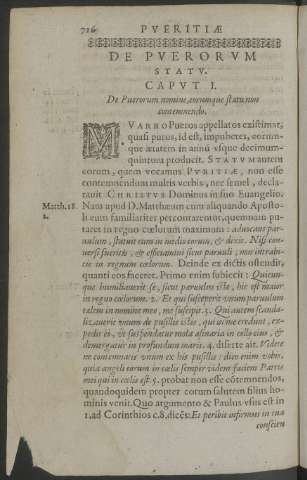 716 PVERITIÆ
DE PVERORVM
STATV.
CAPVT I.
De Puerorum nomine, eorumque statu non
contemnendo.
M. VARRO Pueros appellatos existimat,
quasi puros, id est, impuberes, eorum-
que ætatem in annū vsque decimum-
quintum producit. STATVM autem
eorum, quem vocamus PVRITIÆ, non esse
contemnendum multis verbis, nec semel, decla-
rauit CHRISTVS Dominus in suo Euangelio.
Matth. 18. Nam apud D. Matthæum cum aliquando Aposto-
li eum familiariter percontarentur, quemnam pu-
taret in regno cœlorum maximum: aduocans par-
uulum, statuit eum in medio eorum, & dixit. Nisi con-
uersi fueritis, & efficiamini sicut paruuli, non intrabi-
tis in regnum cœlorum. Deinde ex dictis ostendit,
quanti eos faceret. Primo enim subiecit: Quicun-
que humiliauerit se, sicut paruulus iste, hic est maior
in regno cœlorum. 2. Et qui susceperit vnum paruulum
talem in nomine meo, me suscipit. 3. Qui autem scanda-
lizauerit vnum de pusillis istis, qui in me credunt, expe-
dit ei, vt suspendatur mola asinaria in collo eius, &
demergatur in profundum maris. 4. diserte ait. Videte
ne contemnatis vnum ex his pusillis: dico enim vobis,
quia angeli eorum in cœlis semper vident faciem Patris
mei qui in cœlis est. 5. probat non esse cōtemnendos,
quandoquidem propter eorum salutem filius ho-
minis venit. Quo argumento & Paulus vsus est in
1. ad Corinthios c. 8. dicēs: Et peribit infirmus in tua
conscien